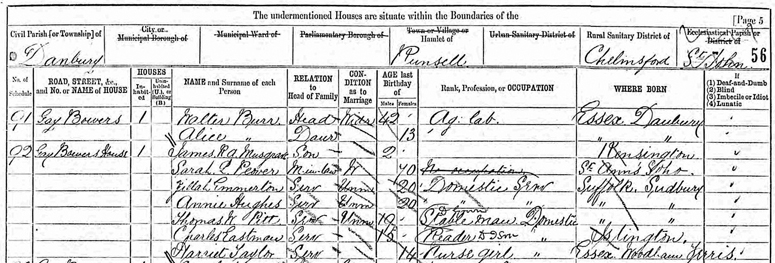 The undermentioned Houses are situate within the Boundaries of the
[Page 5
Civil Parish [or Township] of
Danbury
City or Municipal Borough of
Municipal Ward of
Parliamentary Borough of
Town or Village or Hamlet of
Runsell
Urban Sanitary District of
Rural Sanitary District of
Chelmsford
Ecclesiastical Parish or District of
St John
56
No. of Schedule
ROAD, STREET, &c., and No. or NAME of HOUSE
HOUSES
In-habit-ed
Unin-habited (U.), or Building (B.)
NAME and Surname of each Person
RELATION to Head of Family
CON-DITION as to Marriage
AGE last Birthday of
Males
Females
Rank, Profession, or OCCUPATION
WHERE BORN
If
(1) Deaf-and-Dumb
(2) Blind
(3) Imbecile or Idiot
(4) Lunatic
91 Gay Bowers 1 Walter Burr Head Widr 42 Ag. lab. Essex Danbury
Alice " Daur 13 " "
92 Gay Bowers House 1 James R A Son 2 " Kensington
Sarah Peover M-in-law W 70 St Ann's Soho
Emmerton Serv Unm 20 Domestic Serv Suffolk Sudbury
Annie Hughes Serv Unm 20 " " " "
Thomas W Pitt Serv Unm 19 Stableman Domestic " "
Charles Eastman Serv — 15 " Islington
Harriet Taylor Serv — 14 Nurse girl " Essex Woodham Ferris